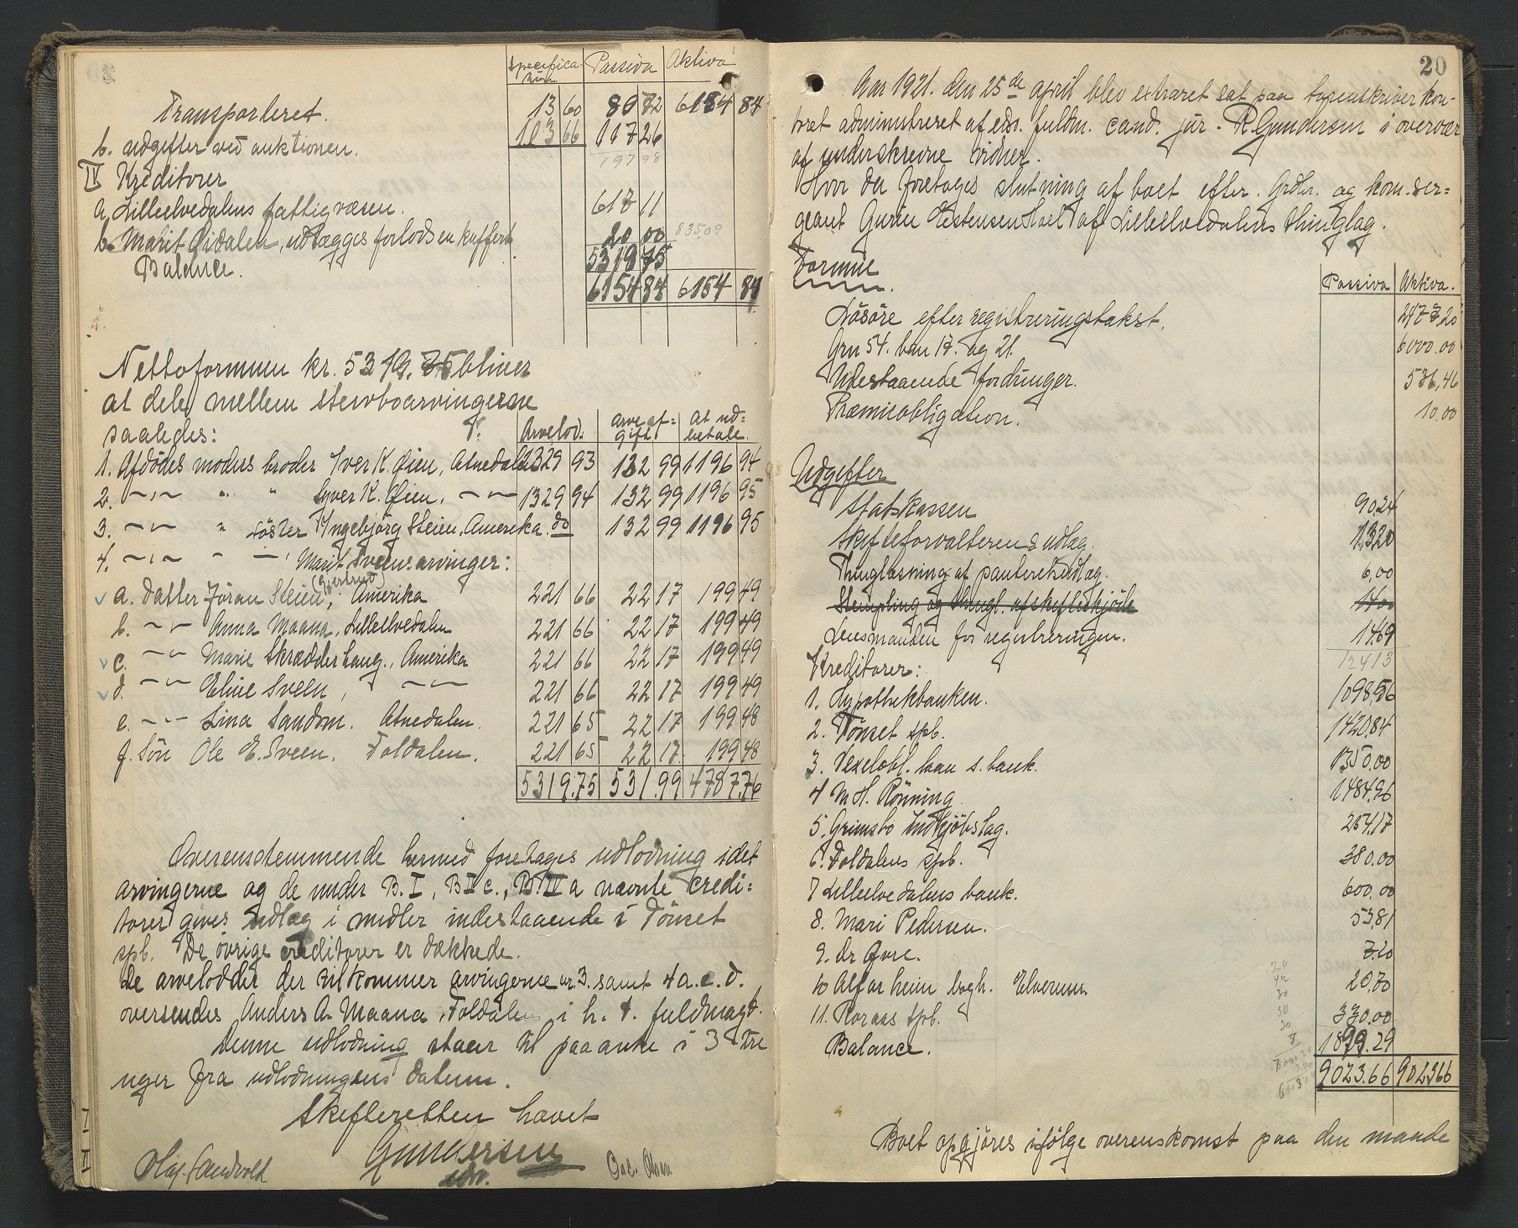 Specifica- Passiva Aktiva
tion
Transporteret. 13 60 80 72 6154 84
b. udgifter ved auktionen. 103 66 117 26
197 98
IV Kreditorer
a, Lilleelvedalens fattigvæsen. 617 11
b. Marit Øidalen, udlægges forlods en kuffert 20 00 835 09
Balance. 5319 75
6154 84 6154 84
Nettoformuen kr. 5319.75 bliver
at dele mellem stervboarvingerne
saaledes: Arvelod. arveaf- At ud-
gift betale.
1. Afdødes moders broder Iver K. Øien, Atnedalen 1329 93 132 99 1196 94
2. -"- " " Syver K. Øien, -"- 1329 94 132 99 1196 95
3. -"- " søster Ingebjørg Steien, Amerika. do 132 99 1196 95
4. -"- " -"- Marit Sveens arvinger:
(Gjertrud)
a. datter Jøran Steien, Amerika 221 66 22 17 199 49
b. -"- Anna Maana, Lilleelvedalen 221 66 22 17 199 49
c. -"- Marie Skrædderhaug, Amerika 221 66 22 17 199 49
d. -"- Eline Sveen, -"- 221 66 22 17 199 49
e. -"- Lina Sandom. Atnedalen. 221 65 22 17 199 48
f. Søn Ole E. Sveen. Foldalen. 221 65 22 17 199 48
5319.75 531.99 4787.76
Overensstemmende hermed foretages udlodning idet
arvingerne og de under B. I, B II c., B. IV a nævnte credi-
torer gives udlæg i midler indestaaende i Tönset
spb. De øvrige creditorer er dækkede.
De arvelodder der tilkommer arvingerne nr. 3. samt 4 a. c. d.
oversendes Anders A. Maana, Foldalen i h. t. fuldmagt.
Denne udlodning staar til paaanke i 3 tre
uger fra udlodningens datum.
Skifteretten hævet
Gundersen
Olaf Sandvold
edv.
Ole Olsen
20
Aar 1921. den 25de april blev extraret sat paa sorenskriverkon-
toret administreret af edv. fuldm. cand. jur. R. Gundersen i overvær
af underskrevne vidner.
Hvor da foretages slutning af boet efter. Grdbr. og kom. ser-
geant af Lilleelvedalens thinglag.
Formue
Passiva Aktiva.
Løsøre efter registreringstakst. 2477,20
Grn 54. bn 17. og 21. 6000.00
Udestaaende fordringer. 536,46
Præmieobligation. 10.00
Udgifter
Statskassen 90,24
Skifteforvalterens udlæg. 13,20
Thinglæsning af panteretsudlæg. 6,00
Stempling og thingl. af skifteskjöde 14.00
Lensmanden for registreringen. 14,69
124 13
Kreditorer:
1. Hypothekbanken. 1098,56
2. Tönset spb. 1420,84
3. Vexelobl. laan s. bank. 1350.00
4 M. H. Rönning. 1484,96
5. Grimsbo Indkjöbslag. 254,17
6. Foldalens spb. 380.00
7 Lilleelvedalens bank. 600,00
8. Mari Pedersen. 53,81
9. dr Øvre. 7.20
10 Alfarheim bogh. Elverum. 20,70
11. Röraas spb. 330,00
Balance. 1899.29
9023.66 9023 66
Boet opgjöres ifölge overenskomst paa den maade